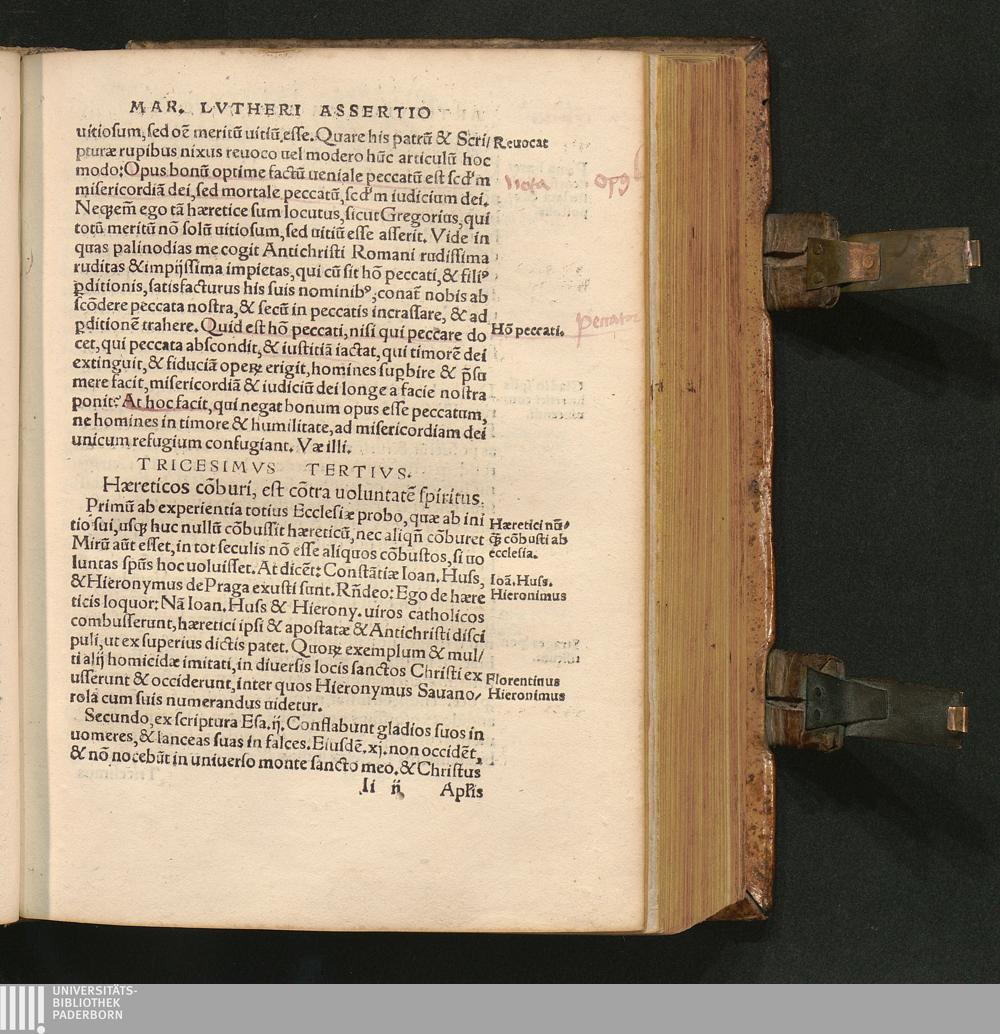 MAR. LVTHERI ASSERTIO
uitiosum, sed oē meritū uitiū esse. Quare his patrū & Scri/
pturæ rupibus nixus reuoco uel modero hūc articulū hoc
modo: Opus bonū optime factū ueniale peccatū est scd'm
misericordiā dei, sed mortale peccatū, scd'm iudicium dei.
Neqꝫ em̄ ego tā hæretice sum locutus, sicut Gregorius, qui
totū meritū nō solū uitiosum, sed uitiū esse asserit. Vide in
quas palinodias me cogit Antichristi Romani rudissima
ruditas & impijssima impietas, qui cū sit hō peccati, & filiꝰ
ꝑditionis, satisfacturus his suis nominibꝰ, conat̄ nobis ab
scōdere peccata nostra, & secū in peccatis incrassare, & ad
ꝑditionē trahere. Quid est hō peccati, nisi qui peccare do
cet, qui peccata abscondit, & iustitiā iactat, qui timorē dei
extinguit, & fiduciā operꝝ erigit, homines suꝑbire & p̄su
mere facit, misericordiā & iudiciū dei longe a facie nostra
ponit? At hoc facit, qui negat bonum opus esse peccatum,
ne homines in timore & humilitate, ad misericordiam dei
unicum refugium confugiant. Væ illi.
Reuocat
nota
Hō peccati.
peccator
TRICESIMVS TERTIVS.
Hæreticos cōburi, est cōtra uoluntatē spiritus.
Primū ab experientia totius Ecclesiæ probo, quæ ab ini
tio sui, usqꝫ huc nullū cōbussit hæreticū, nec aliqñ cōburet
Mirū aūt esset, in tot seculis nō esse aliquos cōbustos, si uo
luntas spūs hoc uoluisset. At dicēt: Constātiæ Ioan. Huss,
& Hieronymus de Praga exusti sunt. Rñdeo: Ego de hære
ticis loquor: Nā Ioan. Huss & Hierony. uiros catholicos
combusserunt, hæretici ipsi & apostatæ & Antichristi disci
puli, ut ex superius dictis patet. Quorꝝ exemplum & mul/
ti alij homicidæ imitati, in diuersis locis sanctos Christi ex
usserunt & occiderunt, inter quos Hieronymus Sauano/
rola cum suis numerandus uidetur.
Secundo, ex scriptura Esa. ij. Conflabunt gladios suos in
uomeres, & lanceas suas in falces. Eiusdē. xj. non occidēt,
& nō nocebūt in uniuerso monte sancto meo. & Christus
Hæretici nū/
q̄ꝫ cōbusti ab
ecclesia.
Ioā. Huss.
Hieronimus
Florentinus
Hieronimus
Ii ij Aplis
UNIVERSITÄTS-
BIBLIOTHEK
PADERBORN